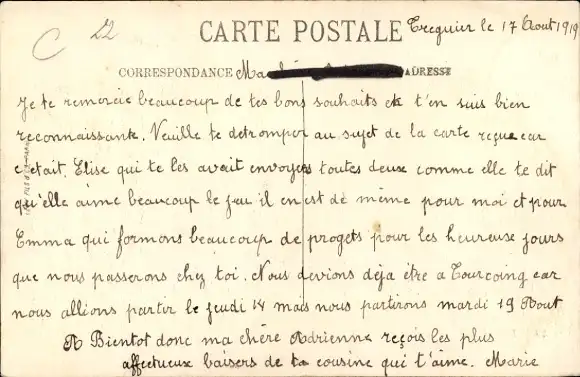 22
CARTE POSTALE
Treguier le 17 Aout 1919
CORRESPONDANCE Ma ADRESSE
Je te remercie beaucoup de tes bons souhaits et t'en suis bien
reconnaissante. Veuille te detromper au sujet de la carte reçue car
c'etait Elise qui te les avait envoyers toutes deux comme elle te dit
qu'elle aime beaucoup le jeu il en est de même pour moi et pour
Emma qui formons beaucoup de progets pour les heureuse jours
que nous passerons chez toi. Nous devions déja être a Tourcoing car
nous allions partir le jeudi 14 mais nous partirons mardi 19 Aout
A Bientot donc ma chère Adrienne reçois les plus
affectueux baisers de ta cousine qui t'aime. Marie